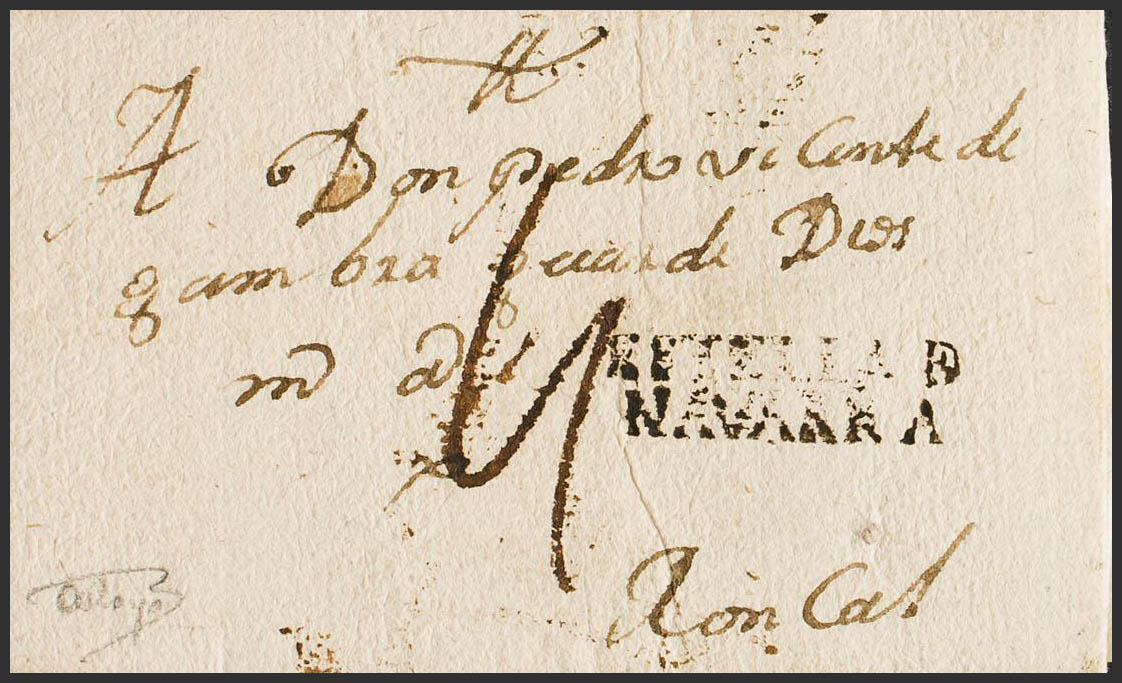 A Don pedro viCente de
gambra guarde Dios
md ads
ESTELLA D
NAVARRA
RonCal